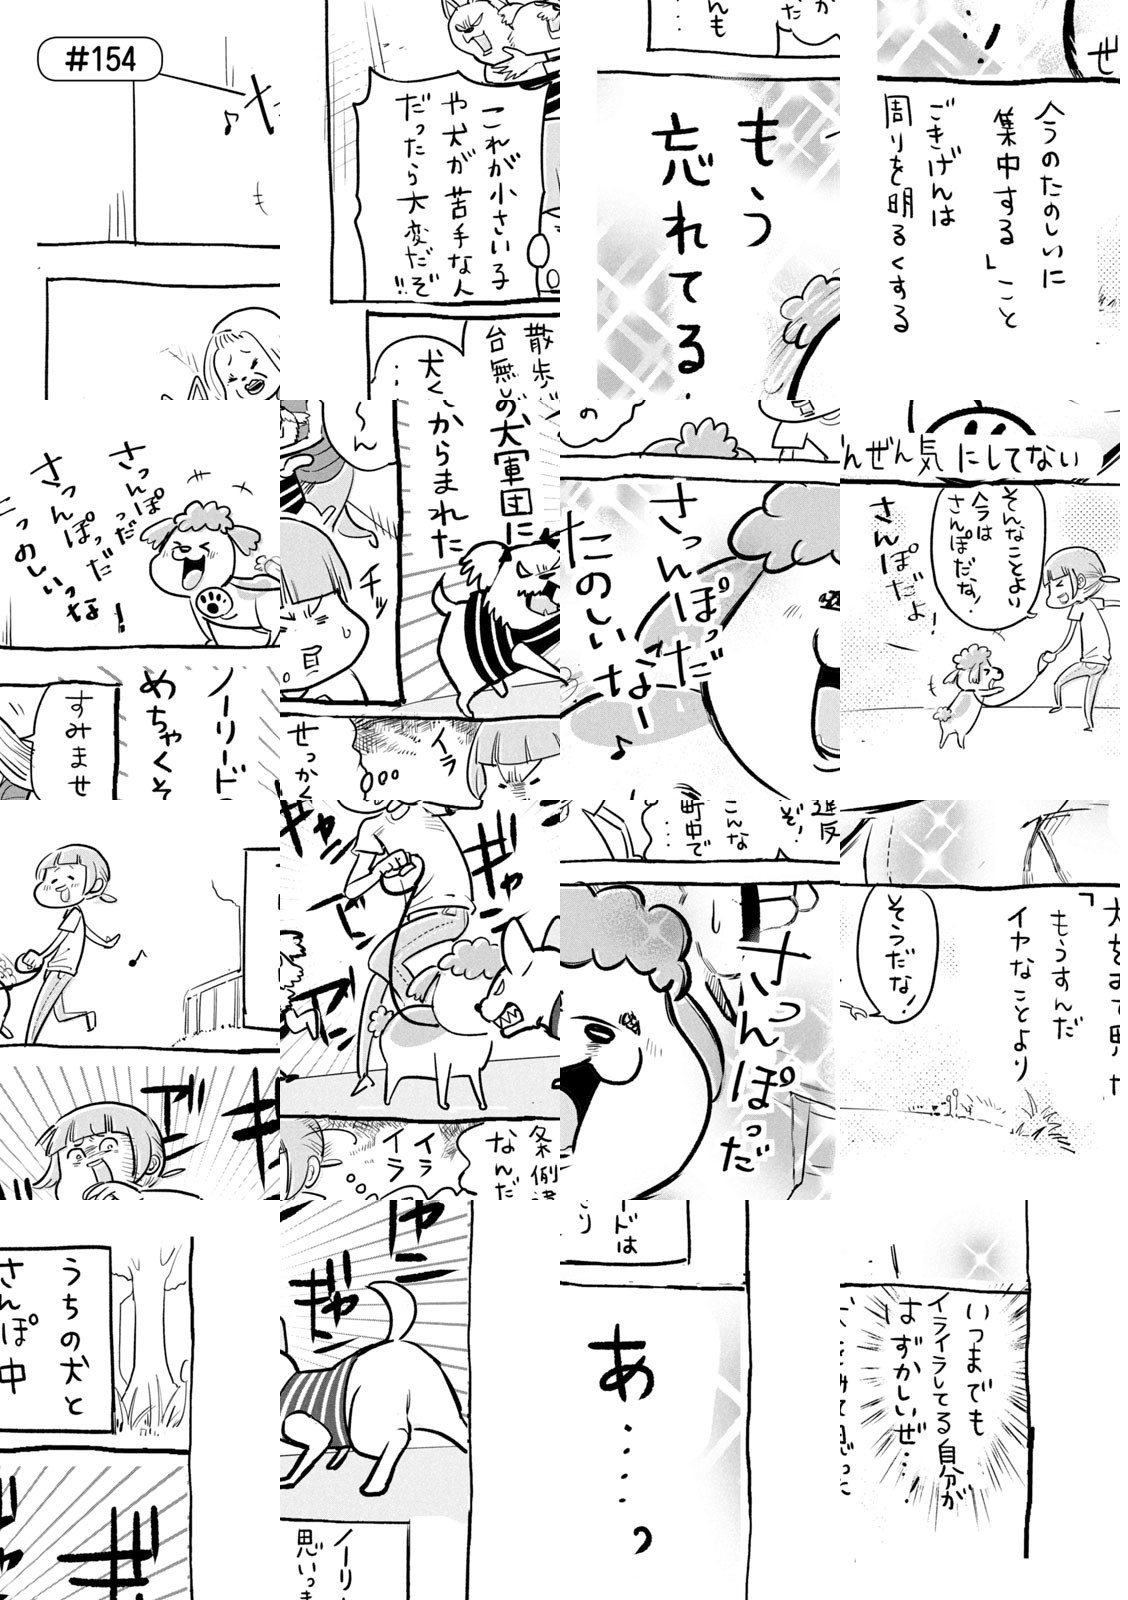 #154
これが小さい子
や犬が苦手な人
だったら大変だぞ!!
散歩
台無し
犬く
もう
忘れてる
今のたのしいに
集中する」こと
ごきげんは
周りを明るくする
さっんぽ
さっんぽっだ
っだ
たっのしいっな!
ノーリード
めちゃくそ
すみませ
の犬軍団に
からまれた
〜ん
チッ
イラ
せっかく
の
さっんぽっだ
なー
たのしいな
ぜんぜん気にしてない
そんなことよい
今は
さんぽだな!
さんぽだよ!
ギャン
ギャ
ドン
アン
条例違
なんだ
イラ
イラ
違反
ぞ!
こんな
町中で
さっんぽっだ
そうだな!
「もうすんだ
イヤなことより
うちの犬と
さんぽ中
ギャ
ャン
ギャ
ノーリー
思いっき
ードは
あ……っ
いつまでも
イライラしてる自分が
はずかしいぜ…!